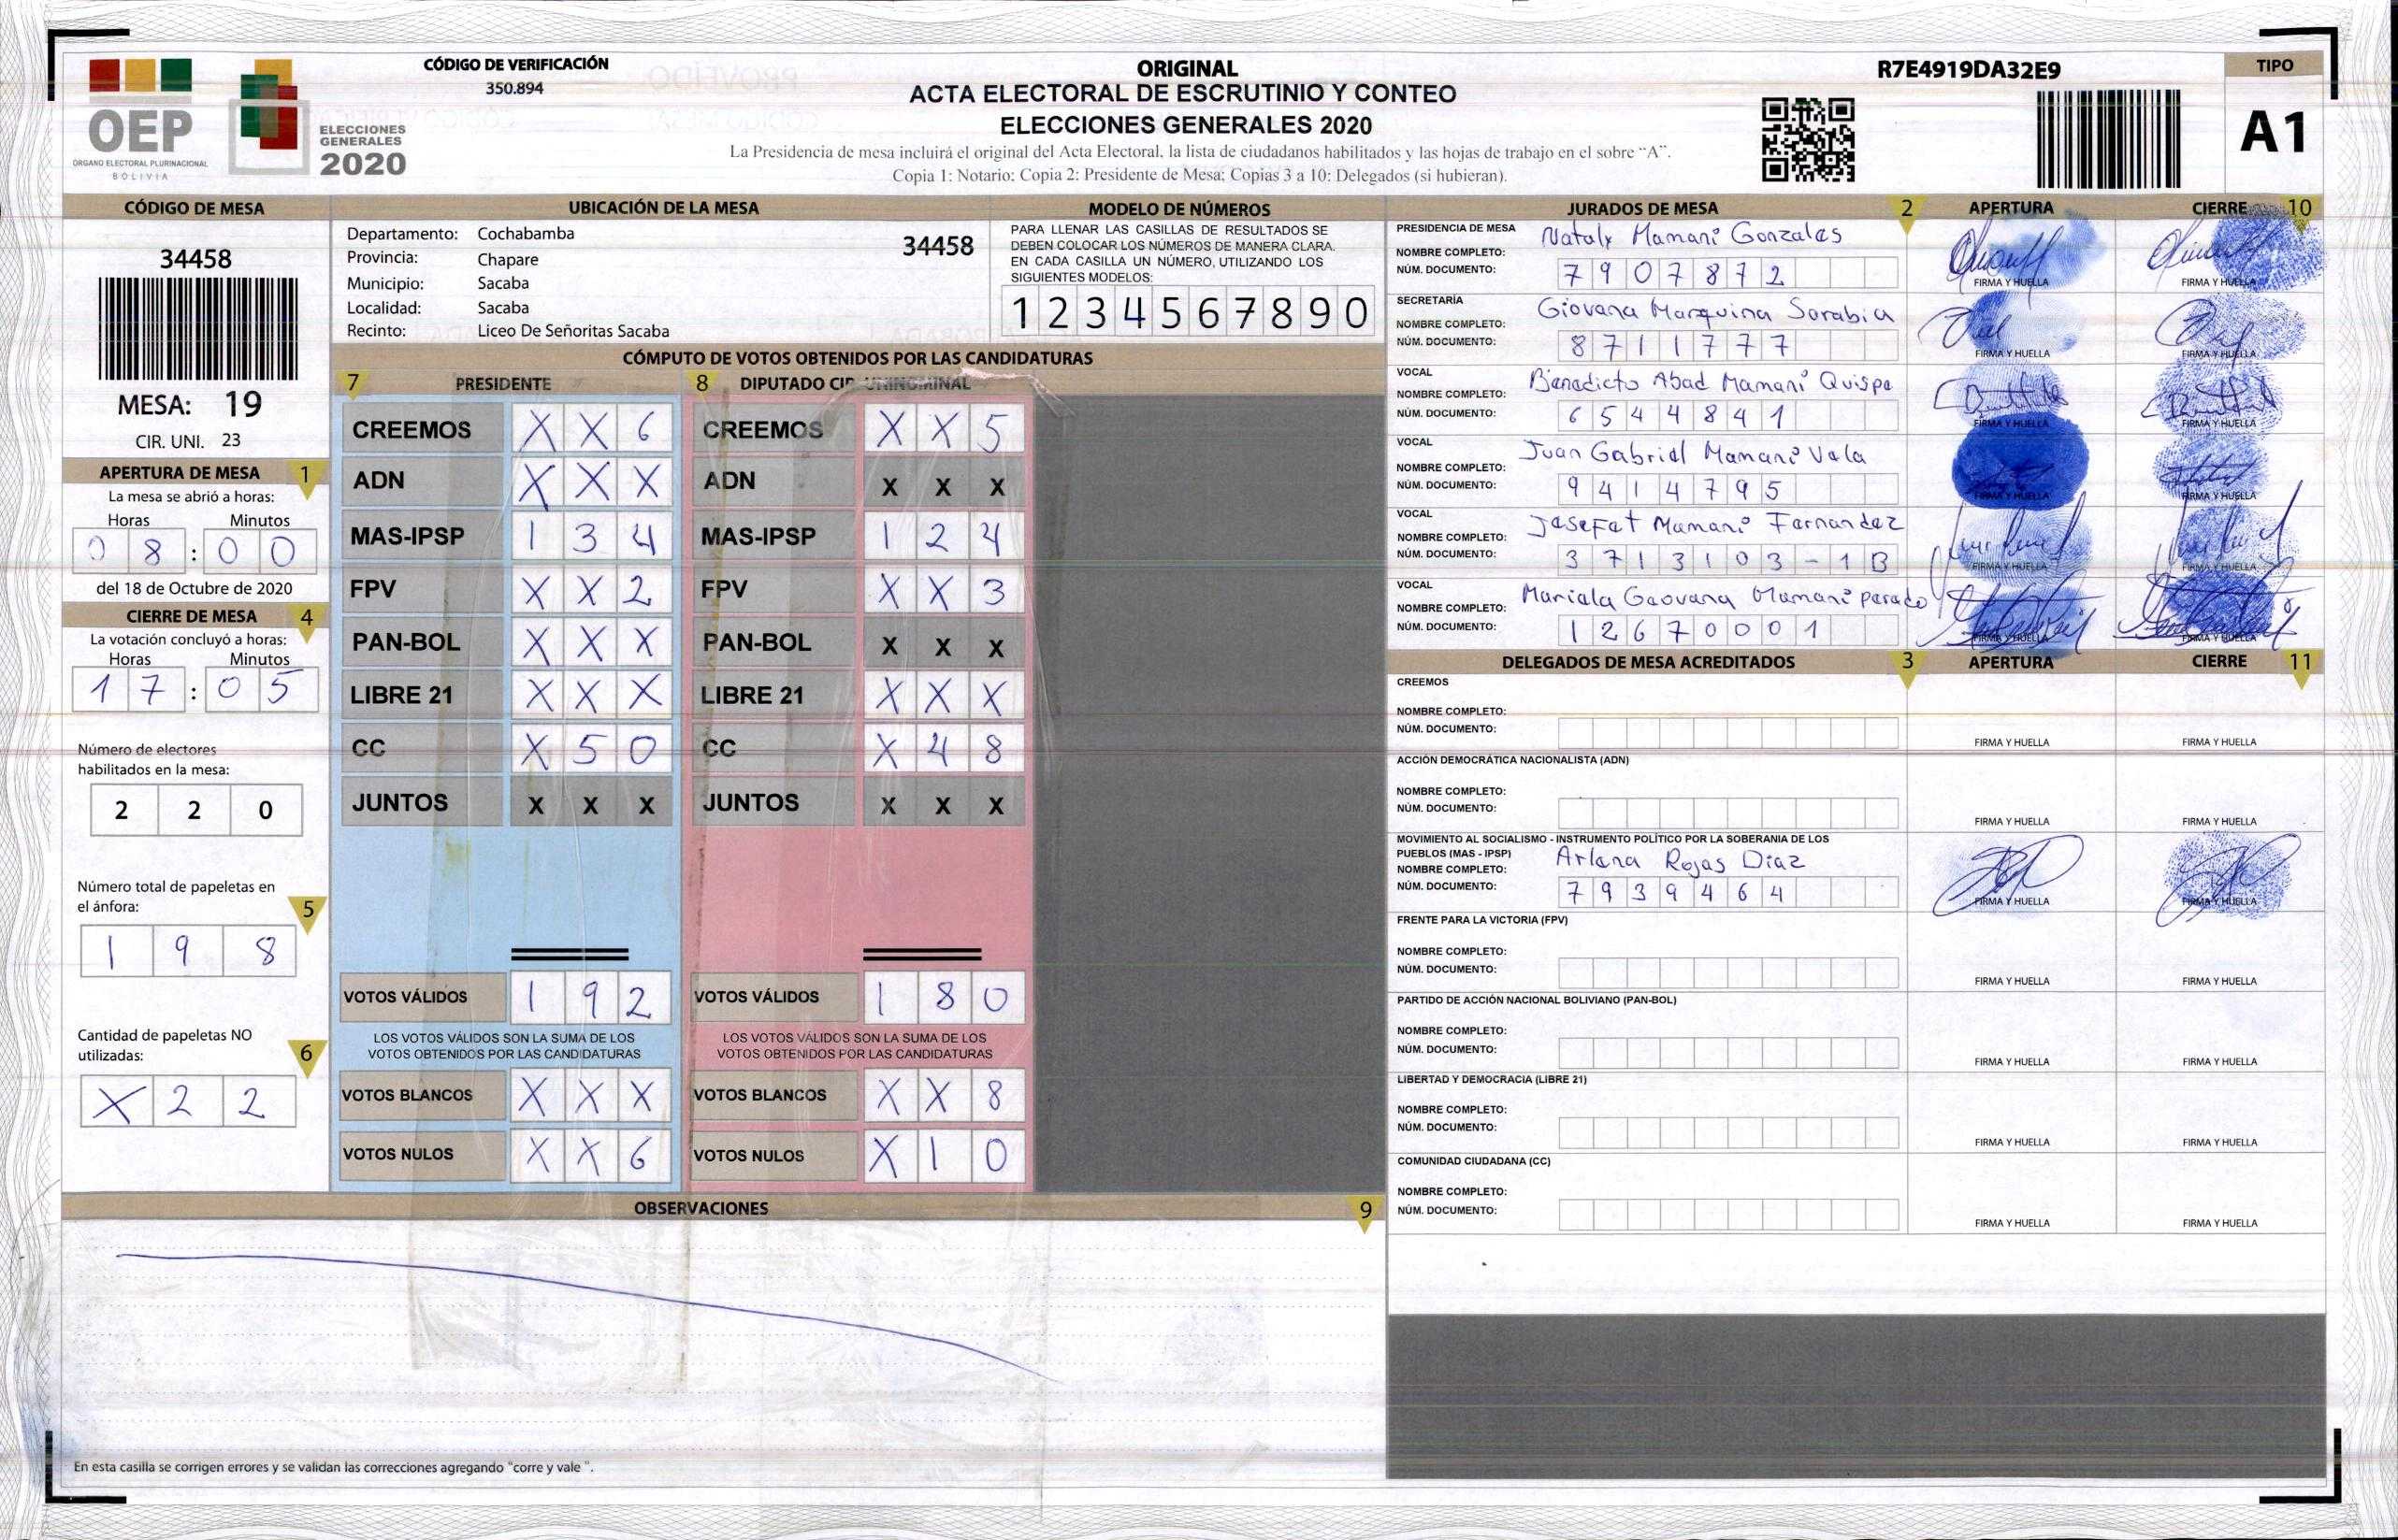 OEP
ÓRGANO ELECTORAL PLURINACIONAL
BOLIVIA
ELECCIONES
GENERALES
2020
CÓDIGO DE VERIFICACIÓN
350.894
ORIGINAL
ACTA ELECTORAL DE ESCRUTINIO Y CONTEO
ELECCIONES GENERALES 2020
La Presidencia de mesa incluirá el original del Acta Electoral, la lista de ciudadanos habilitados y las hojas de trabajo en el sobre “A”.
Copia 1: Notario; Copia 2: Presidente de Mesa; Copias 3 a 10: Delegados (si hubieran).
R7E4919DA32E9
TIPO
A1
CÓDIGO DE MESA
34458
MESA: 19
CIR. UNI. 23
APERTURA DE MESA 1
La mesa se abrió a horas:
Horas Minutos
0 8 : 0 0
del 18 de Octubre de 2020
CIERRE DE MESA 4
La votación concluyó a horas:
Horas Minutos
1 7 : 0 5
Número de electores
habilitados en la mesa:
2 2 0
Número total de papeletas en
el ánfora: 5
1 9 8
Cantidad de papeletas NO
utilizadas: 6
X 2 2
UBICACIÓN DE LA MESA
Departamento: Cochabamba 34458
Provincia: Chapare
Municipio: Sacaba
Localidad: Sacaba
Recinto: Liceo De Señoritas Sacaba
MODELO DE NÚMEROS
PARA LLENAR LAS CASILLAS DE RESULTADOS SE
DEBEN COLOCAR LOS NÚMEROS DE MANERA CLARA.
EN CADA CASILLA UN NÚMERO, UTILIZANDO LOS
SIGUIENTES MODELOS:
1 2 3 4 5 6 7 8 9 0
CÓMPUTO DE VOTOS OBTENIDOS POR LAS CANDIDATURAS
7 PRESIDENTE
CREEMOS X X 6
ADN X X X
MAS-IPSP 1 3 4
FPV X X 2
PAN-BOL X X X
LIBRE 21 X X X
CC X 5 0
JUNTOS X X X
VOTOS VÁLIDOS 1 9 2
LOS VOTOS VÁLIDOS SON LA SUMA DE LOS
VOTOS OBTENIDOS POR LAS CANDIDATURAS
VOTOS BLANCOS X X X
VOTOS NULOS X X 6
8 DIPUTADO CIR. UNINOMINAL
CREEMOS X X 5
ADN X X X
MAS-IPSP 1 2 4
FPV X X 3
PAN-BOL X X X
LIBRE 21 X X X
CC X 4 8
JUNTOS X X X
VOTOS VÁLIDOS 1 8 0
LOS VOTOS VÁLIDOS SON LA SUMA DE LOS
VOTOS OBTENIDOS POR LAS CANDIDATURAS
VOTOS BLANCOS X X 8
VOTOS NULOS X 1 0
OBSERVACIONES 9
En esta casilla se corrigen errores y se validan las correcciones agregando "corre y vale ".
JURADOS DE MESA 2 APERTURA CIERRE 10
PRESIDENCIA DE MESA
NOMBRE COMPLETO: Nataly Mamani Gonzales
NÚM. DOCUMENTO: 7907872
FIRMA Y HUELLA FIRMA Y HUELLA
SECRETARÍA
NOMBRE COMPLETO: Giovana Marquina Sarabia
NÚM. DOCUMENTO: 8711777
FIRMA Y HUELLA FIRMA Y HUELLA
VOCAL
NOMBRE COMPLETO: Benedicto Abad Mamani Quispe
NÚM. DOCUMENTO: 6544841
FIRMA Y HUELLA FIRMA Y HUELLA
VOCAL
NOMBRE COMPLETO: Juan Gabriel Mamani Vela
NÚM. DOCUMENTO: 9414795
FIRMA Y HUELLA FIRMA Y HUELLA
VOCAL
NOMBRE COMPLETO: Josefat Mamani Fernandez
NÚM. DOCUMENTO: 3713103-1B
FIRMA Y HUELLA FIRMA Y HUELLA
VOCAL
NOMBRE COMPLETO: Mariela Geovana Mamani parado
NÚM. DOCUMENTO: 12670001
FIRMA Y HUELLA FIRMA Y HUELLA
DELEGADOS DE MESA ACREDITADOS 3 APERTURA CIERRE 11
CREEMOS
NOMBRE COMPLETO:
NÚM. DOCUMENTO:
FIRMA Y HUELLA FIRMA Y HUELLA
ACCIÓN DEMOCRÁTICA NACIONALISTA (ADN)
NOMBRE COMPLETO:
NÚM. DOCUMENTO:
FIRMA Y HUELLA FIRMA Y HUELLA
MOVIMIENTO AL SOCIALISMO - INSTRUMENTO POLÍTICO POR LA SOBERANIA DE LOS
PUEBLOS (MAS - IPSP)
NOMBRE COMPLETO: Arlena Rojas Diaz
NÚM. DOCUMENTO: 7939464
FIRMA Y HUELLA FIRMA Y HUELLA
FRENTE PARA LA VICTORIA (FPV)
NOMBRE COMPLETO:
NÚM. DOCUMENTO:
FIRMA Y HUELLA FIRMA Y HUELLA
PARTIDO DE ACCIÓN NACIONAL BOLIVIANO (PAN-BOL)
NOMBRE COMPLETO:
NÚM. DOCUMENTO:
FIRMA Y HUELLA FIRMA Y HUELLA
LIBERTAD Y DEMOCRACIA (LIBRE 21)
NOMBRE COMPLETO:
NÚM. DOCUMENTO:
FIRMA Y HUELLA FIRMA Y HUELLA
COMUNIDAD CIUDADANA (CC)
NOMBRE COMPLETO:
NÚM. DOCUMENTO:
FIRMA Y HUELLA FIRMA Y HUELLA